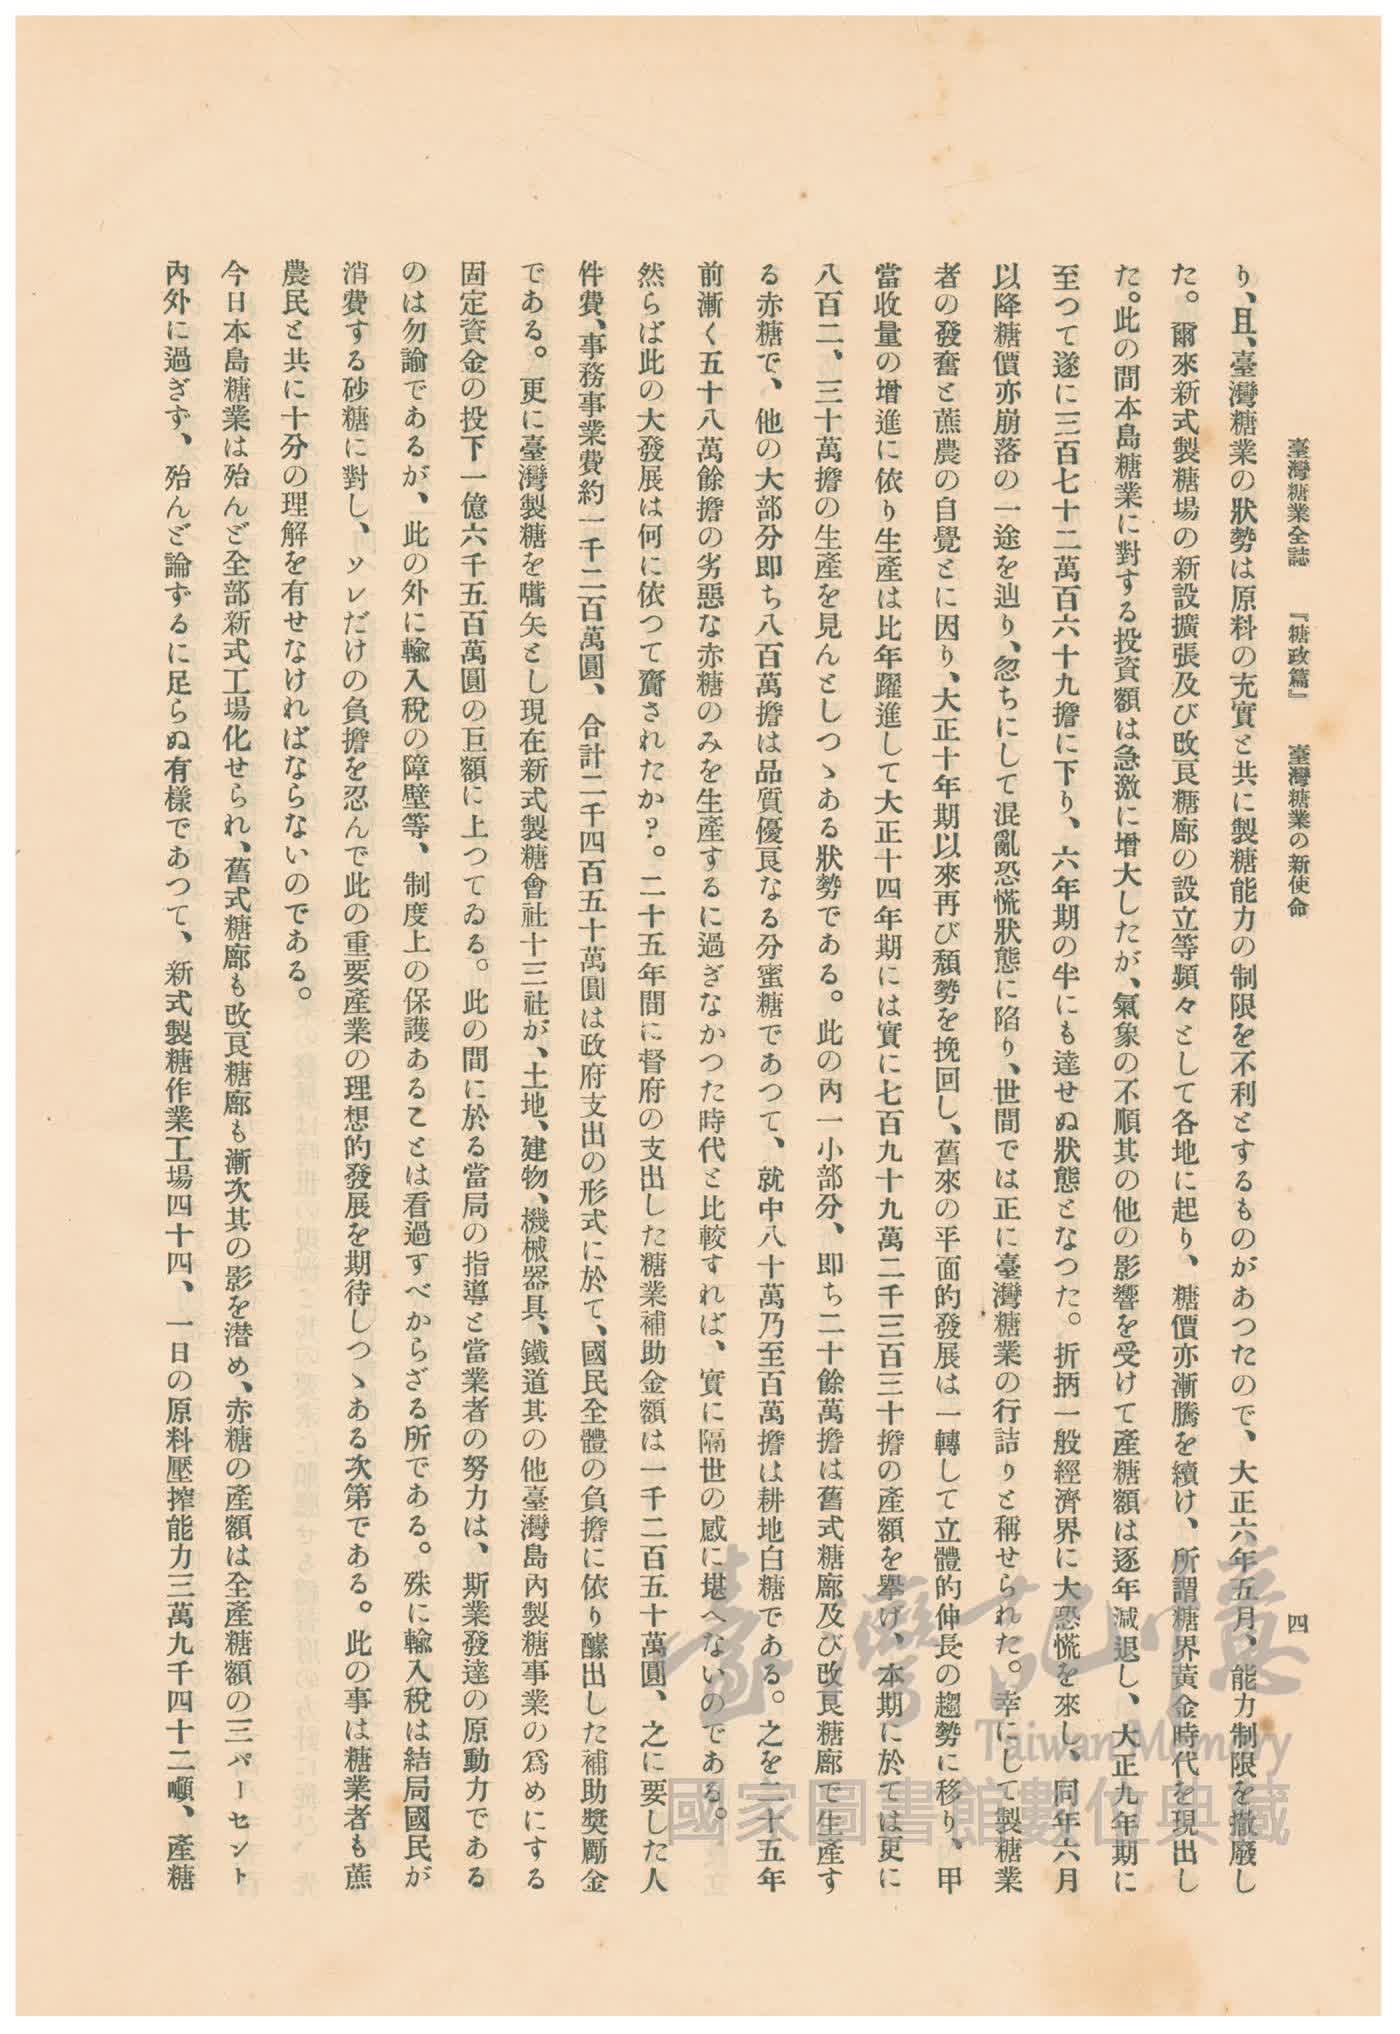 臺灣糖業全誌　『糖政篇』　臺灣糖業の新使命　四
り、且、臺灣糖業の狀勢は原料の充實と共に製糖能力の制限を不利とするものがあつたので、大正六年五月、能力制限を撤廢し
た。爾來新式製糖場の新設擴張及び改良糖廍の設立等頻々として各地に起り、糖價亦漸騰を續け、所謂糖界黃金時代を現出し
た。此の間本島糖業に對する投資額は急激に增大したが、氣象の不順其の他の影響を受けて產糖額は逐年減退し、大正九年期に
至つて遂に三百七十二萬百六十九擔に下り、六年期の半にも達せぬ狀態となつた。折柄一般經濟界に大恐慌を來し、同年六月
以降糖價亦崩落の一途を辿り、忽ちにして混亂恐慌狀態に陷り、世間では正に臺灣糖業の行詰りと稱せられた。幸にして製糖業
者の發奮と蔗農の自覺とに因り、大正十年期以來再び頽勢を挽回し、舊來の平面的發展は一轉して立體的伸長の趨勢に移り、甲
當收量の增進に依り生產は比年躍進して大正十四年期には實に七百九十九萬二千三百三十擔の產額を擧げ、本期に於ては更に
八百二、三十萬擔の生產を見んとしつゝある狀勢である。此の內一小部分、即ち二十餘萬擔は舊式糖廍及び改良糖廍で生產す
る赤糖で、他の大部分即ち八百萬擔は品質優良なる分蜜糖であつて、就中八十萬乃至百萬擔は耕地白糖である。之を二十五年
前漸く五十八萬餘擔の劣惡な赤糖のみを生產するに過ぎなかつた時代と比較すれば、實に隔世の感に堪へないのである。
然らば此の大發展は何に依つて齎されたか?。二十五年間に督府の支出した糖業補助金額は一千二百五十萬圓、之に要した人
件費、事務事業費約一千二百萬圓、合計二千四百五十萬圓は政府支出の形式に於て、國民全體の負擔に依り醵出した補助獎勵金
である。更に臺灣製糖を嚆矢とし現在新式製糖會社十三社が、土地、建物、機械器具、鐵道其の他臺灣島內製糖事業の爲めにする
固定資金の投下一億六千五百萬圓の巨額に上つてゐる。此の間に於る當局の指導と當業者の努力は、斯業發達の原動力である
のは勿論であるが、此の外に輸入稅の障壁等、制度上の保護あることは看過すべからざる所である。殊に輸入稅は結局國民が
消費する砂糖に對し、ソレだけの負擔を忍んで此の重要產業の理想的發展を期待しつゝある次第である。此の事は糖業者も蔗
農民と共に十分の理解を有せなければならないのである。
今日本島糖業は殆んど全部新式工場化せられ、舊式糖廍も改良糖廍も漸次其の影を潛め、赤糖の產額は全產糖額の三パーセント
內外に過ぎず、殆んど論ずるに足らぬ有樣であつて、新式製糖作業工場四十四、一日の原料壓搾能力三萬九千四十二噸、產糖
臺灣記憶
Taiwan Memory
國家圖書館數位典藏